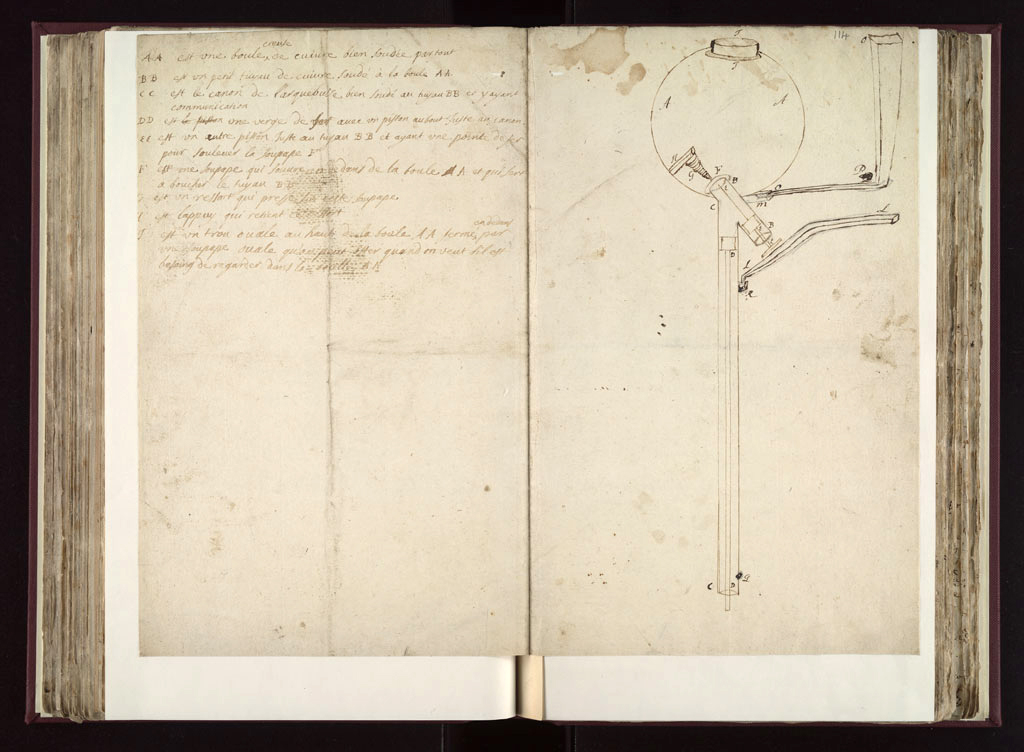 creuse
AA est une boule de cuivre bien soudée partout
BB est un petit tuyau de cuivre soudé à la boule AA
CC est le canon de l'arquebuse bien soudé au tuyau BB et y ayant
communication
DD est le piston une verge de fer avec un piston au bout juste au canon
EE est un autre piston juste au tuyau BB et ayant une pointe de fer
pour soulever la soupape F
F est une soupape qui s'ouvre en dedans de la boule AA et qui sert
a boucher le tuyau BB
est un ressort qui presse cette soupape
est l'appuy qui retient ce ressort
en dedans
est un trou ovale au haut de la boule AA fermé par
une soupape ovale qu'on peut oster quand on veut s'il est
besoing de regarder dans la boulle AA
114
I
I
O
A
A
H
G
F
B
C
m
P
C
B
L
D
i
C
D
a